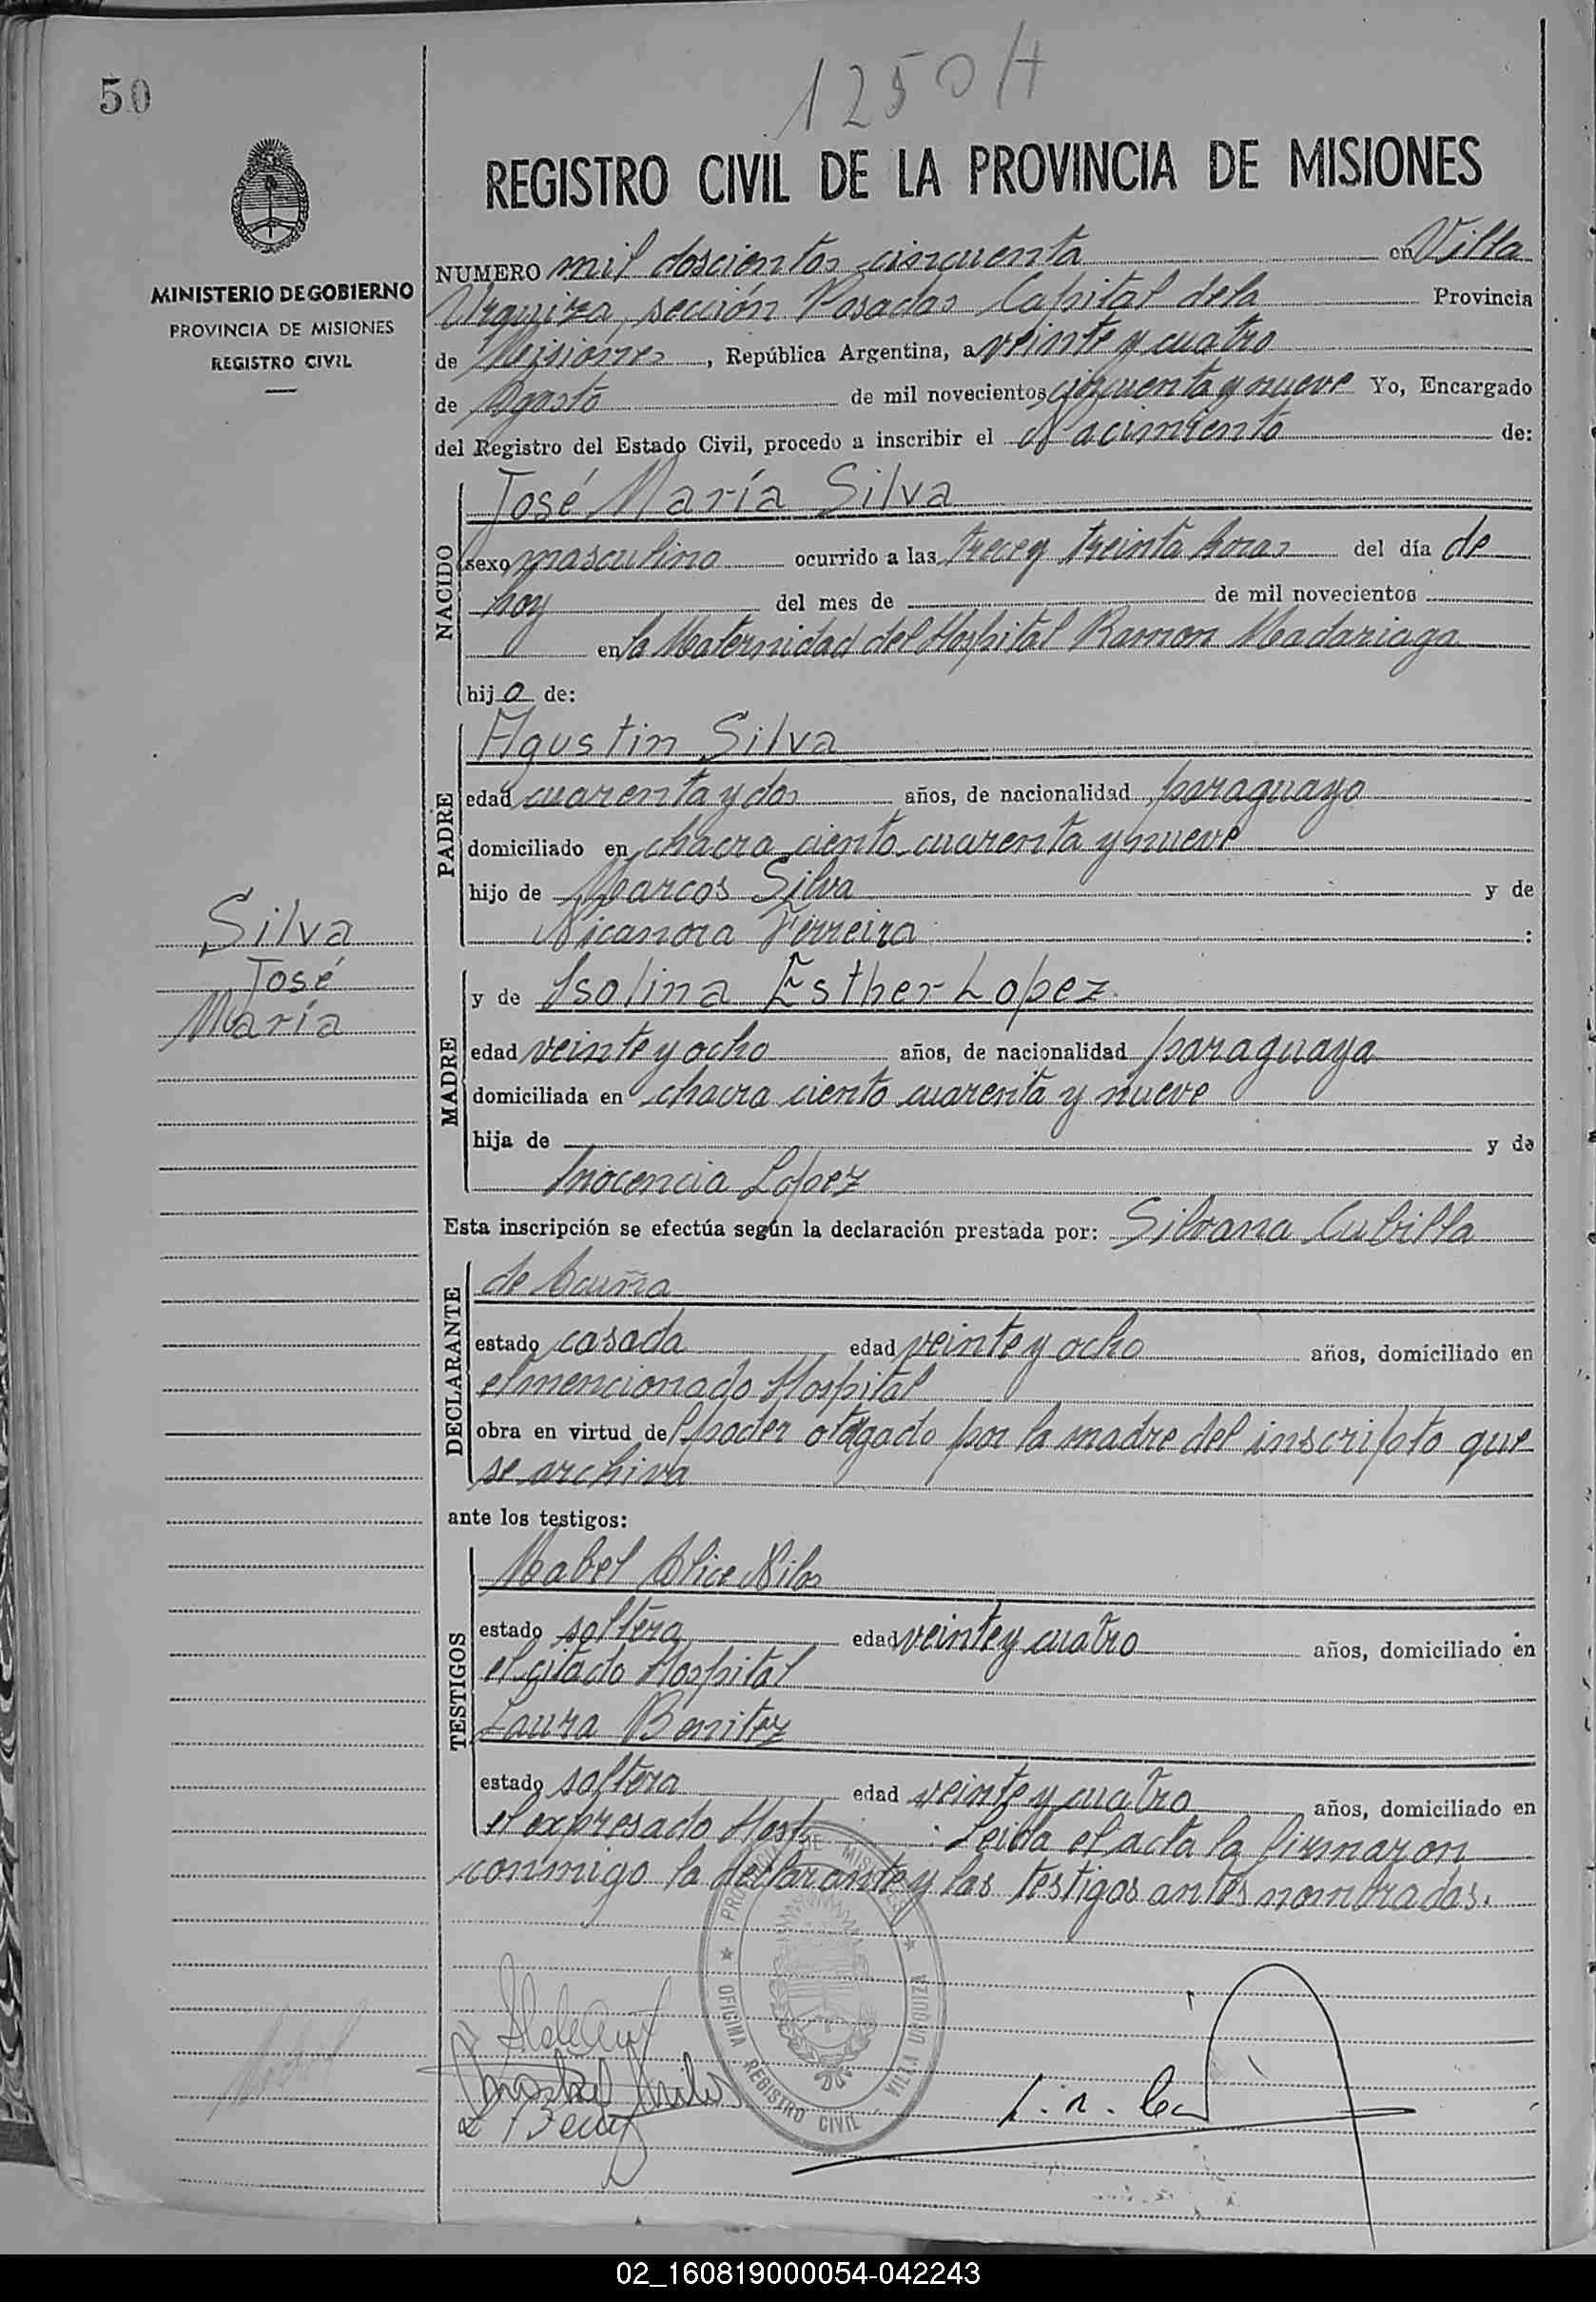 50
1250 H
REGISTRO CIVIL DE LA PROVINCIA DE MISIONES
MINISTERIO DE GOBIERNO
PROVINCIA DE MISIONES
REGISTRO CIVIL
NUMERO mil doscientos cincuenta en Villa
Urquiza, sección Posadas Capital de la Provincia
de Misiones, República Argentina, a veinte y cuatro
de Agosto de mil novecientos cincuenta y nueve Yo, Encargado
del Registro del Estado Civil, procedo a inscribir el Nacimiento de:
NACIDO
José María Silva
sexo masculino ocurrido a las trece y treinta horas del día de
hoy del mes de de mil novecientos
en la Maternidad del Hospital Ramon Madariaga
hijo de:
PADRE
Agustin Silva
edad cuarenta y dos años, de nacionalidad paraguayo
domiciliado en chacra ciento cuarenta y nueve
hijo de Marcos Silva y de
Nicanora Ferreira :
Silva
José
María
MADRE
y de Isolina Esther Lopez
edad veinte y ocho años, de nacionalidad paraguaya
domiciliada en chacra ciento cuarenta y nueve
hija de y de
Inocencia Lopez
Esta inscripción se efectúa según la declaración prestada por: Silvana Cubilla
DECLARANTE
de Acuña
estado casada edad veinte y ocho años, domiciliado en
el mencionado Hospital
obra en virtud del poder otogado por la madre del inscripto que
se archiva
ante los testigos:
TESTIGOS
Mabel Alice Nilos
estado soltera edad veinte y cuatro años, domiciliado en
el citado Hospital
Laura Benitez
estado soltera edad veinte y cuatro años, domiciliado en
el expresado Hosp. : Leida el acta la firmaron
conmigo la declarante y las testigos antes nombradas.
PROVINCIA DE MISIONES
OFICINA REGISTRO CIVIL VILLA URQUIZA
02_160819000054-042243